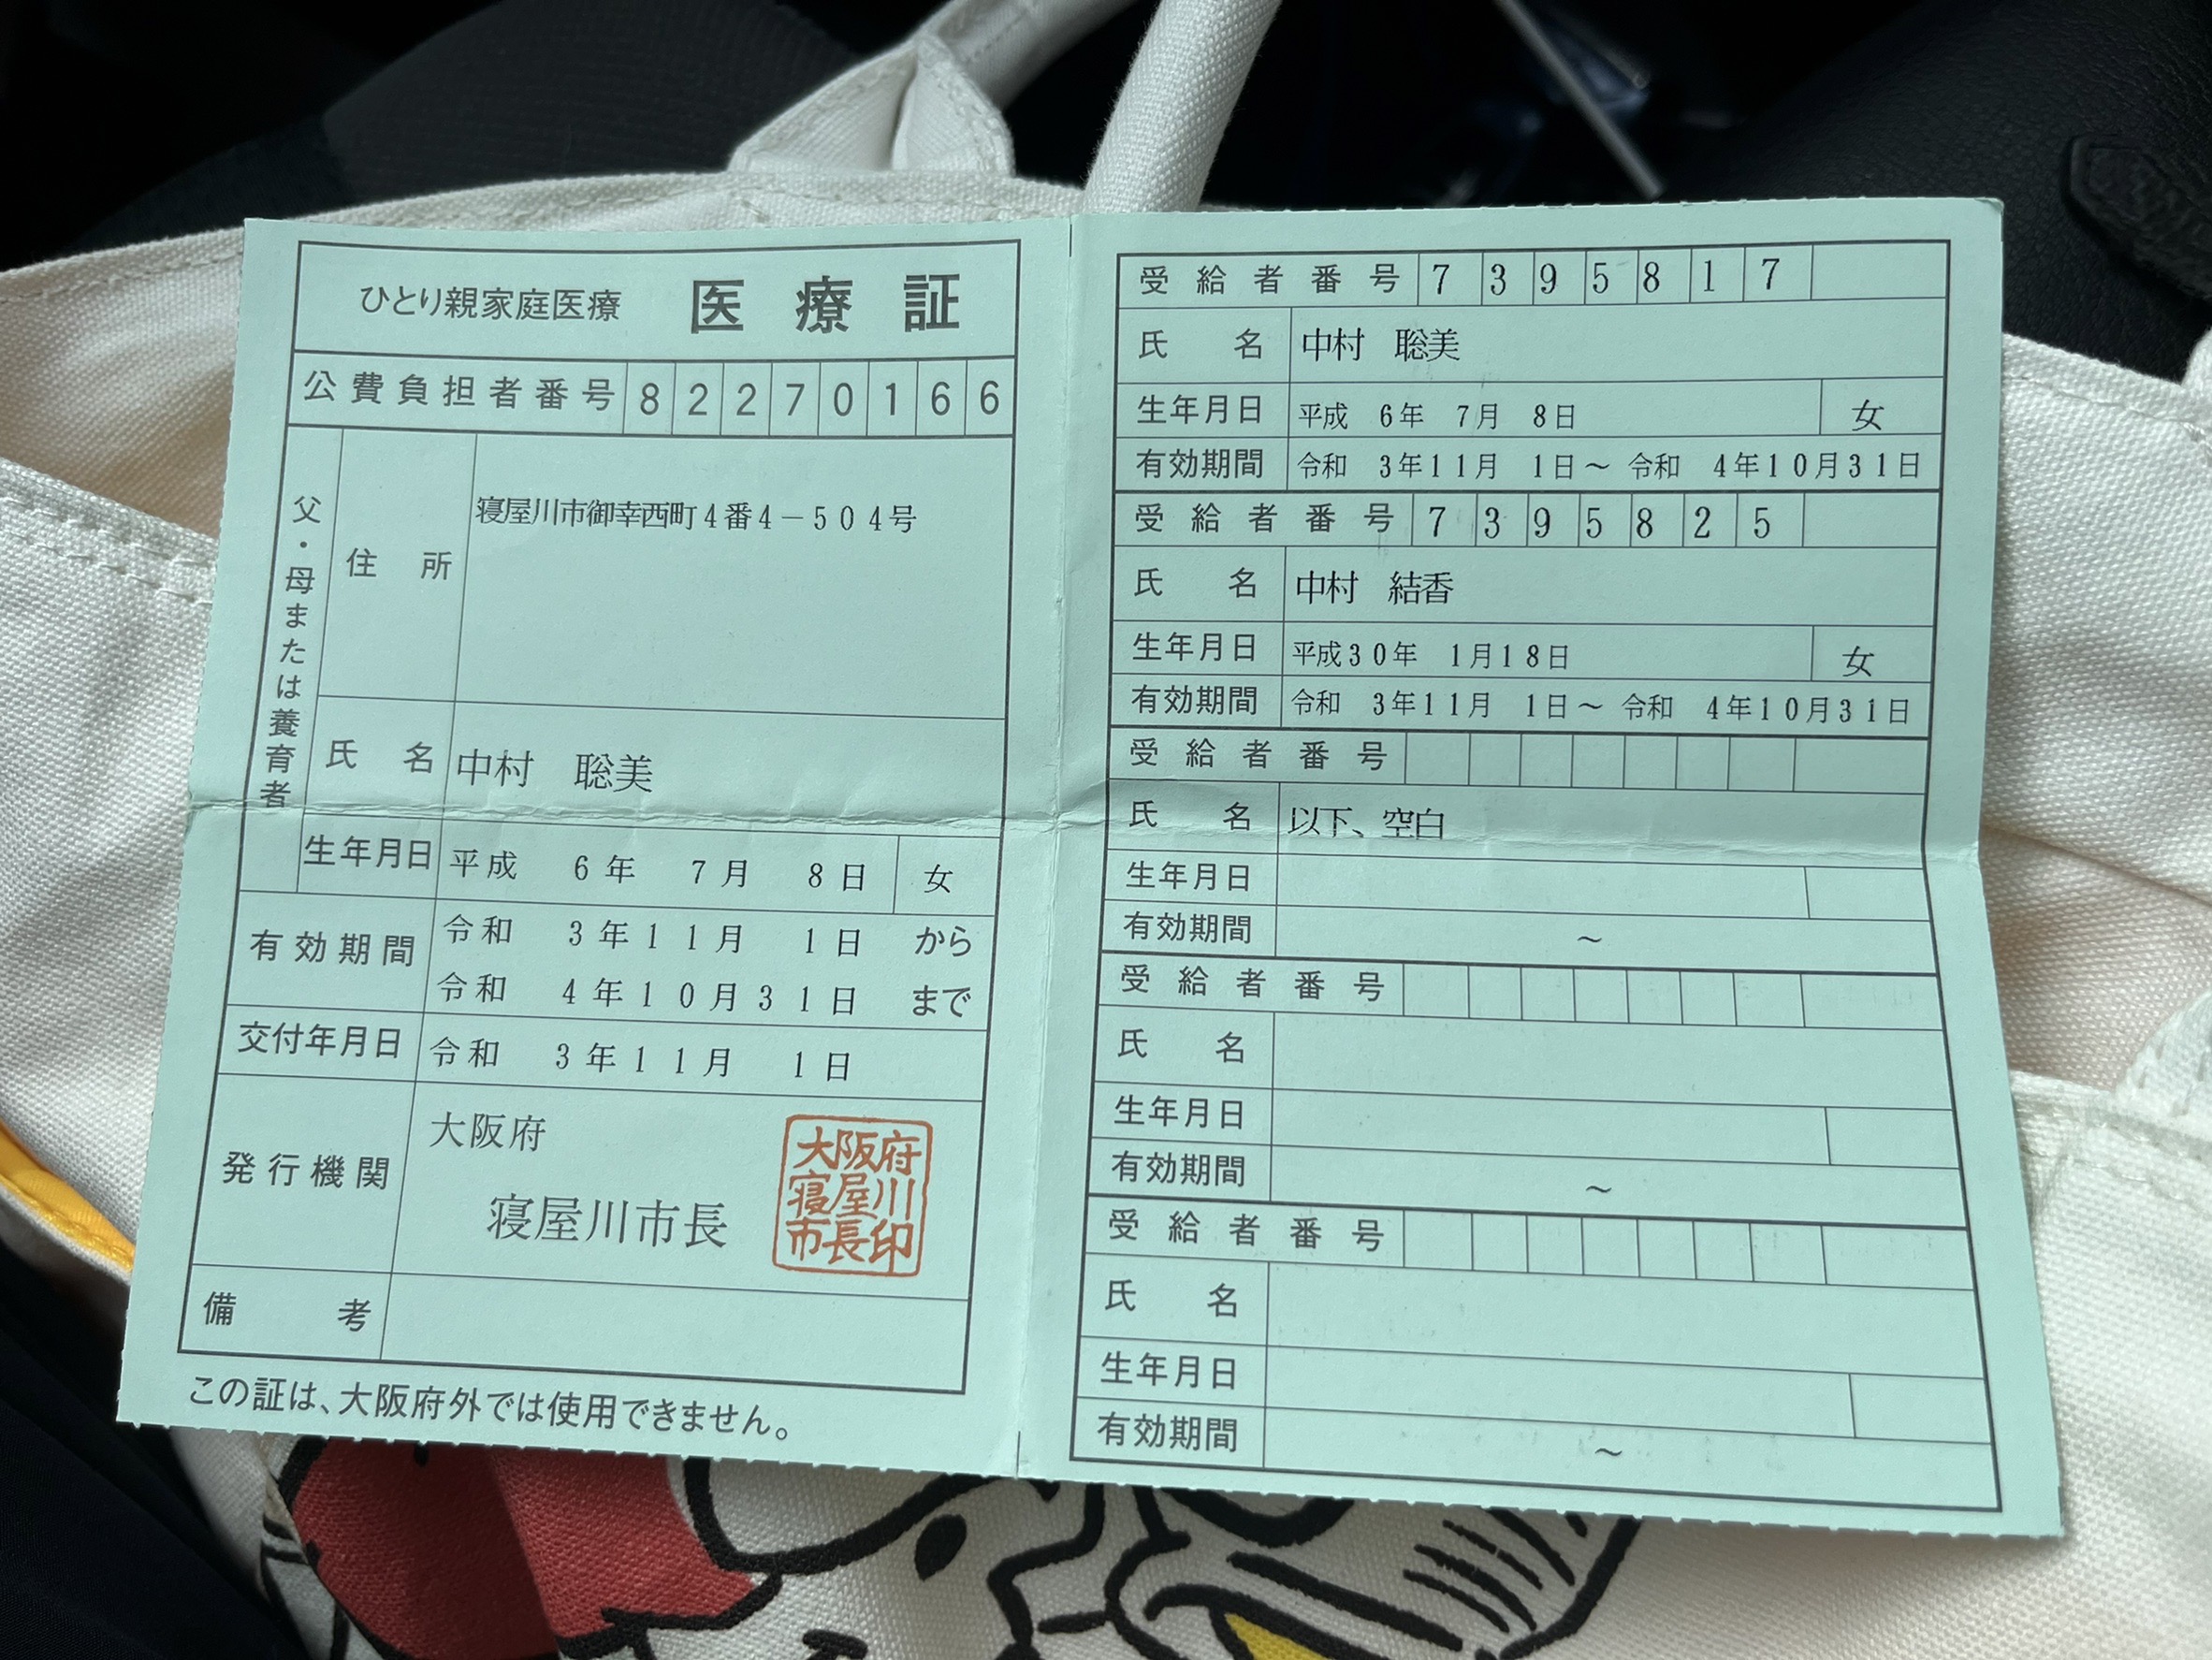 ひとり親家庭医療 医療証
公費負担者番号 82270166
父・母または養育者
住所 寝屋川市御幸西町4番4－504号
氏名 中村 聡美
生年月日 平成 6年 7月 8日 女
有効期間 令和 3年11月 1日 から
令和 4年10月31日 まで
交付年月日 令和 3年11月 1日
発行機関 大阪府
寝屋川市長
大阪府
寝屋川
市長印
備考
この証は、大阪府外では使用できません。
受給者番号 7395817
氏名 中村 聡美
生年月日 平成 6年 7月 8日 女
有効期間 令和 3年11月 1日～ 令和 4年10月31日
受給者番号 7395825
氏名 中村 結香
生年月日 平成30年 1月18日 女
有効期間 令和 3年11月 1日～ 令和 4年10月31日
受給者番号
氏名 以下、空白
生年月日
有効期間 ～
受給者番号
氏名
生年月日
有効期間 ～
受給者番号
氏名
生年月日
有効期間 ～